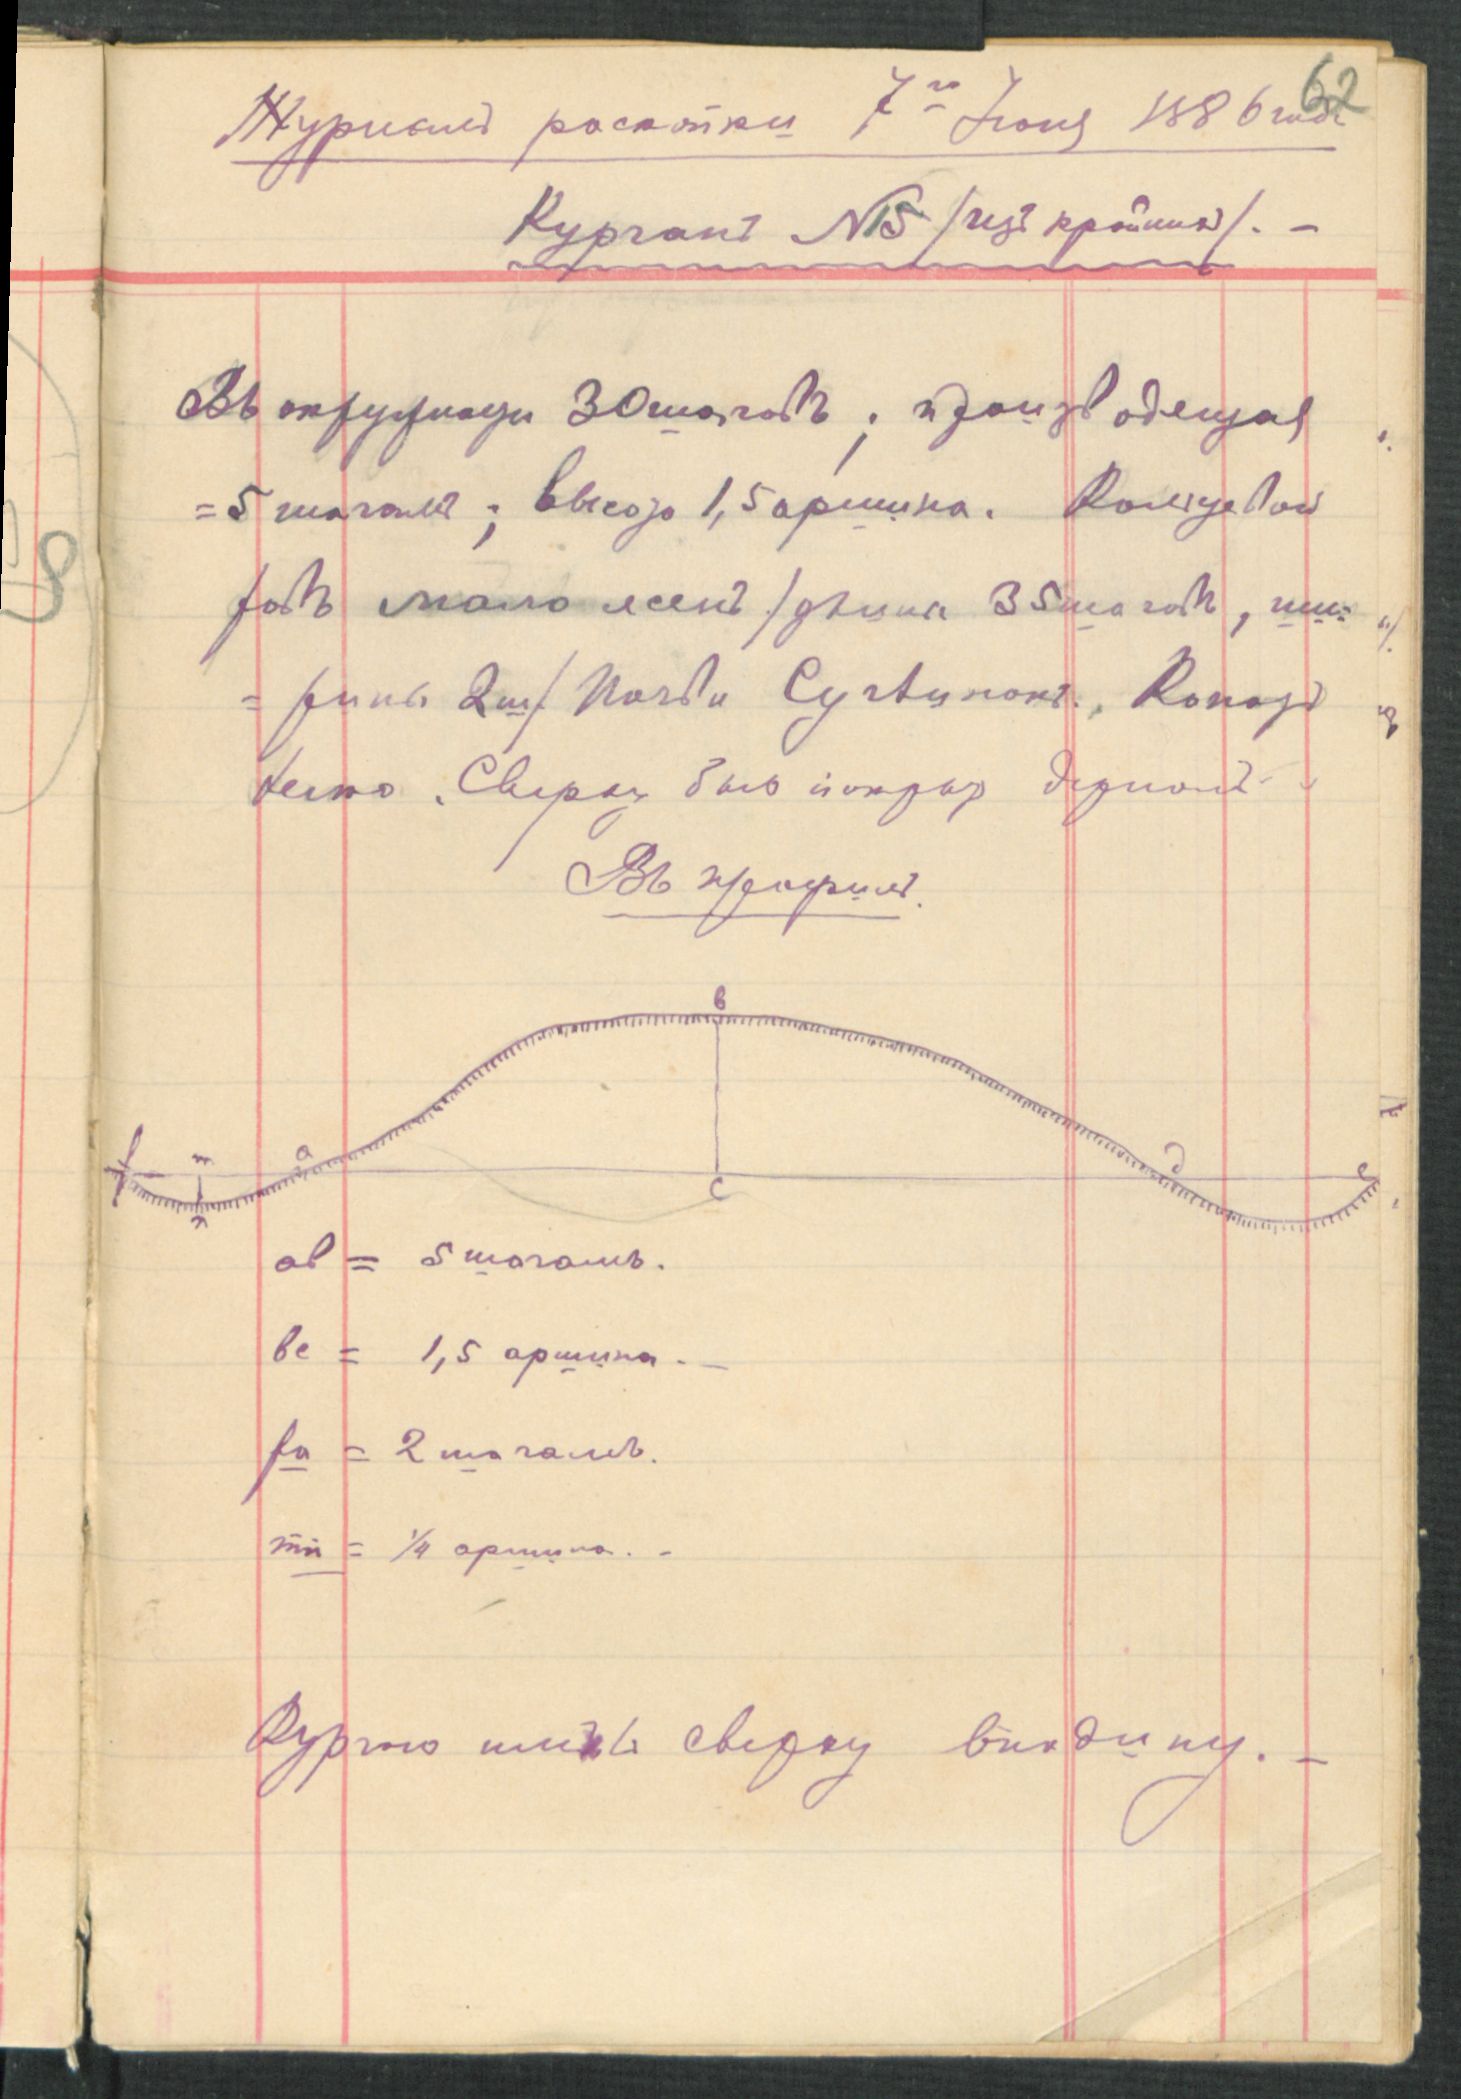 62
Журналъ раскопки 7го Іюня 1886 года
Курганъ №15 /изъ крайнихъ/. –
Въ окружности 30 шаговъ; производящая
= 5 шагамъ; высота 1,5 аршина. Кольцевой
ровъ мало ясенъ /длина 35 шаговъ, ши=
= рина 2 ш/ Почва Суглинокъ. Копать
легко. Сверху былъ покрытъ дерномъ
Въ профиль.
в
f m a c д e
n
ав = 5 шагамъ.
вс = 1,5 аршина. –
fa = 2 шагамъ.
mn = 1/4 аршина. –
Курганъ имѣлъ сверху впадину. –